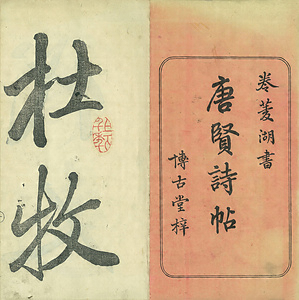 卷菱湖書
唐賢詩帖
博古堂梓
杜牧